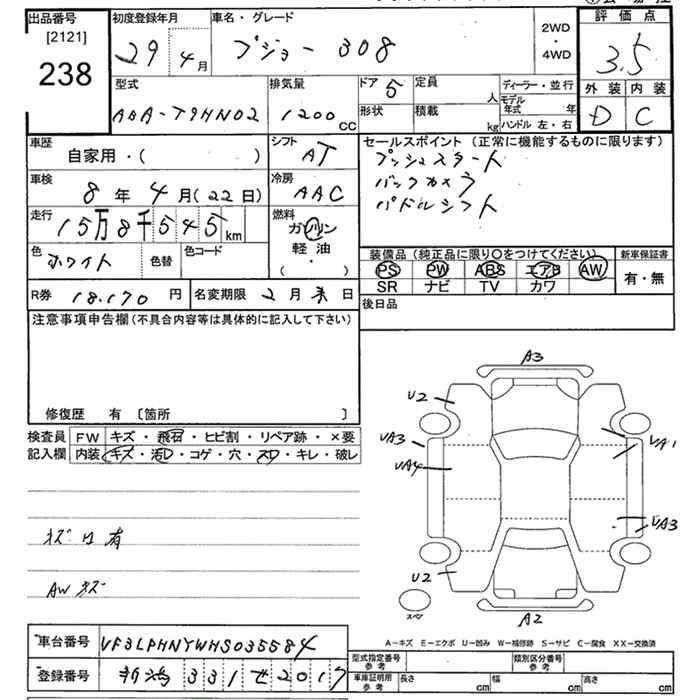 出品番号 初度登録年月 車名・グレード 評価点
[2121]
238
29 4月 プジョー 308 2WD・4WD 3.5
型式 排気量 ドア 5 定員 人 ディーラー・並行 外装 内装
ABA-T9HN02 1200 CC 形状 積載 kg モデル年式 年 D C
ハンドル 左・右
車歴 シフト セールスポイント (正常に機能するものに限ります)
自家用・( ) AT プッシュスタート
車検 冷房 バックカメラ
8年 4月(22日) AAC パドルシフト
走行 15万8千545km 燃料
ガソリン
軽油
( ・ )
色 色替 色コード 装備品 (純正品に限り○をつけてください) 新車保証書
ホワイト PS PW ABS エアB AW 有・無
SR ナビ TV カワ
R券 18.170円 名変期限 2月末日 後日品
注意事項申告欄(不具合内容等は具体的に記入して下さい)
修復歴 有 〔箇所 〕
検査員 FW キズ・飛石・ヒビ割・リペア跡・×要
記入欄 内装 キズ・汚レ・コゲ・穴・スレ・キレ・破レ
A3
U2
UA3 UA1
UA4
UA3
U2
A2
スペア
キズ凹有
AWキズ
A-キズ E-エクボ U-凹み W-補修跡 S-サビ C-腐食 XX-交換済
車台番号 VF3LPHNYWHS035584
登録番号 新潟 331 せ 2017
型式指定番号 参考 類別区分番号 参考
車庫証明用 参考 長さ cm 幅 cm 高さ cm